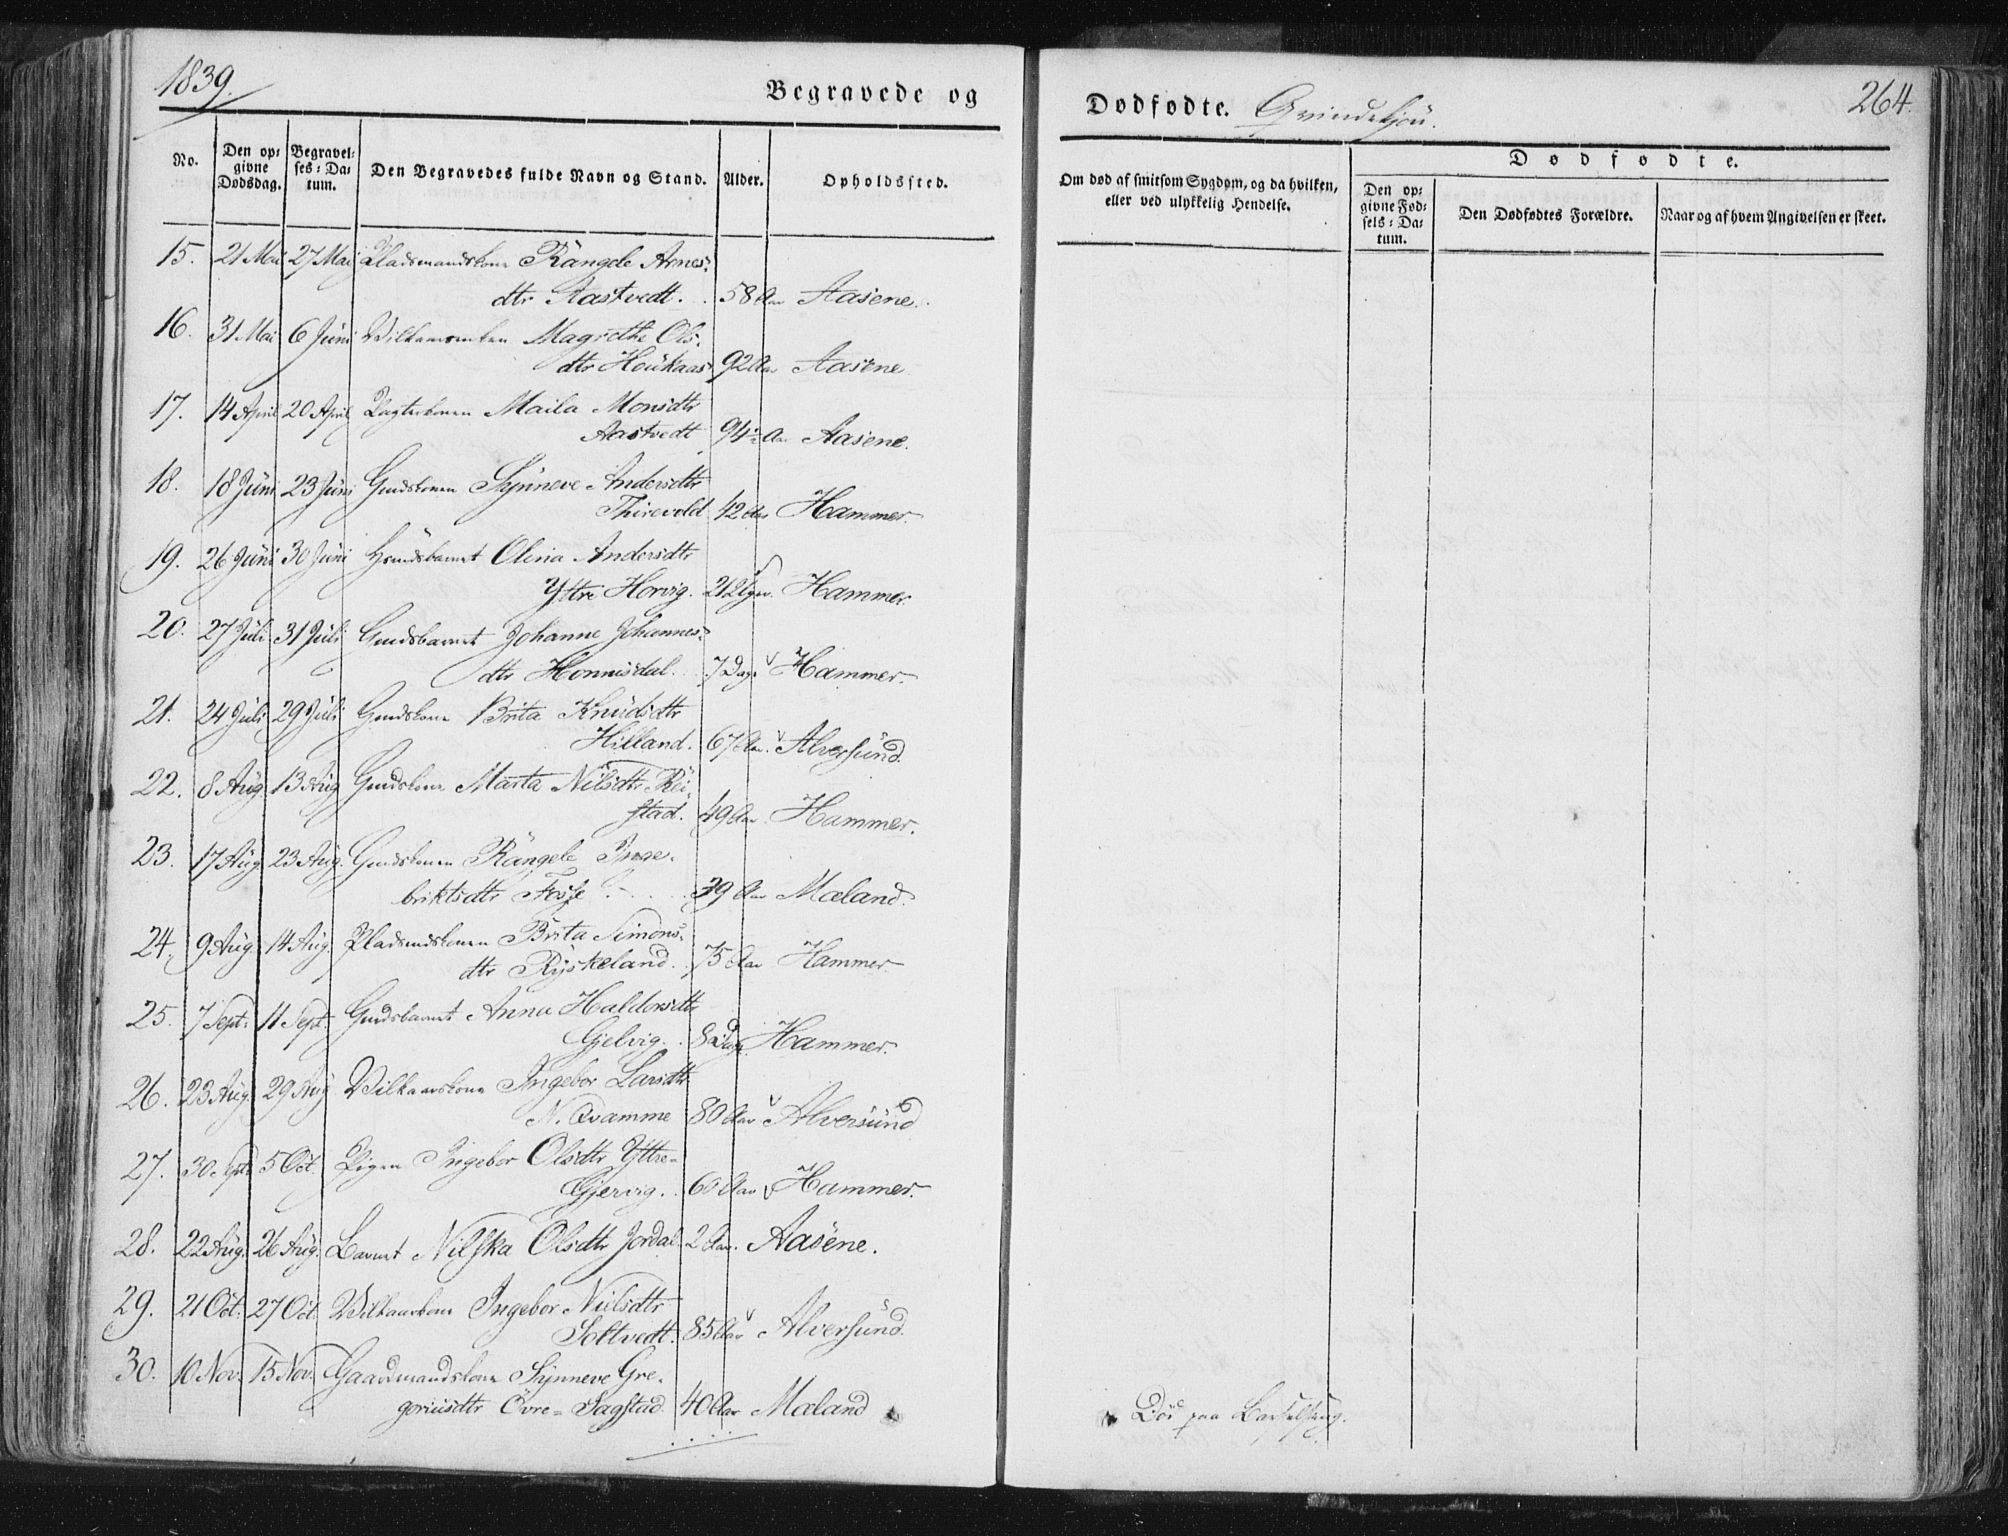 1839.
Begravede og
Dødfødte. Qvindekjön.
264.
No.
Den op=
givne
Dødsdag.
Begravel=
ses=Da=
tum.
Den Begravedes fulde Navn og Stand.
Alder.
Opholdssted.
Om død af smitsom Sygdom, og da hvilken,
eller ved ulykkelig Hendelse.
Dødfødte.
Den op=
givne Fød=
sels=Da=
tum.
Den Dødfødtes Forældre.
Naar og af hvem Angivelsen er skeet.
15. 21 Mai 27 Mai Pladsmandskone Rangele Arnes=
dtr Aastvedt. 58 Aar Aasene.
16. 31 Mai 6 Juni Magrethe Ols=
dtr Houkaas 92 Aar Aasene
17. 14 April 20 April Maila Monsdtr
Aastvedt 94 Aar Aasene.
18. 18 Juni 23 Juni Gmdskonen Synneve Andersdtr
42 Aar Hammer.
19. 26 Juni 30 Juni Olina Andersdtr
Yttre Horvig. Hammer.
20. 27 Juli 31 Juli Gmdsbarnet Johanne Johannes=
dtr Honnisdal. 7 Dage Hammer.
21. 24 Juli 29 Juli Gmdskone Brita Knudsdtr
Hilland. 67 Aar. Alversund.
22. 8 Aug 13 Aug Gmdskone Marta Nilsdtr Rei=
stad. 49 Aar Hammer.
23. 17 Aug 23 Aug. Gmdskonen Rangele Inge=
briktsdtr Fosse 39 Aar Mæland.
24. 9 Aug. 14 Aug. Pladsmdskonen Brita Simons=
dtr Ryskeland. 75 Aar Hammer
25. 7 Sept. 11 Sept. Gmdsbarnet Anna Haldorsdtr
Gjelvig. 8 Dage Hammer.
26. 23 Aug. 29 Aug Vilkaarskone Ingebor Larsdtr
N. Qvamme 80 Aar Alversund
27. 30 Sept 5 Oct. Pigen Ingebor Olsdtr Yttre=
Gjervig. 60 Aar Hammer.
28. 22 Aug. 26 Aug. Barnet Nilska Olsdtr Jordal 2 Aar. Aasene.
29. 21 Oct. 27 Oct. Vilkaarskone Ingebor Nielsdtr
Soltvedt. 85 Aar Alversund.
30. 10 Nov. 15 Nov. Gaardmandskone Synneve Gre=
goriusdtr Övre= Sagstad 40 Aar Mæland
Död paa Barselseng.